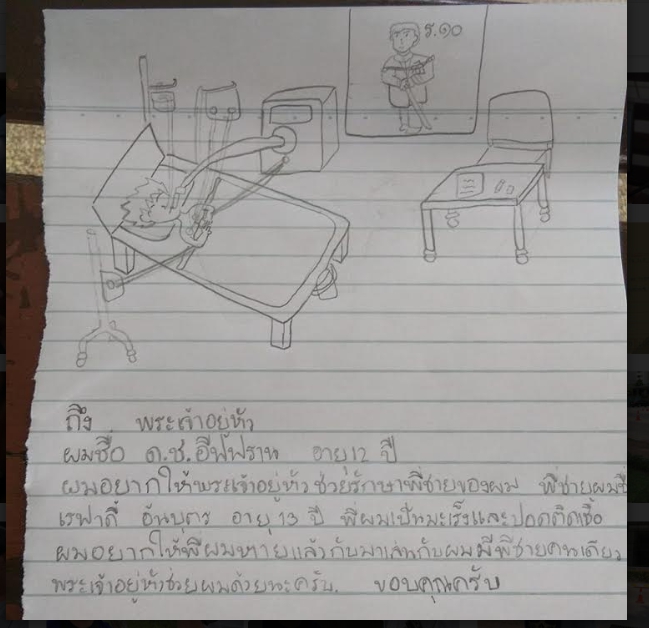 ร.๑๐
ถึง พระเจ้าอยู่หัว
ผมชื่อ ด.ช.อีฟฟราน อายุ 12 ปี
ผมอยากให้พระเจ้าอยู่หัว ช่วยรักษาพี่ชายของผม พี่ชายผมชื่
เรฟาดี้ อันบุตร อายุ 13 ปี พี่ผมเป็นมะเร็งและปอดติดเชื้อ
ผมอยากให้พี่ผมหายแล้วกับมาเล่นกับผมมีพี่ชายคนเดียว
พระเจ้าอยู่หัวช่วยผมด้วยนะครับ. ขอบคุณครับ